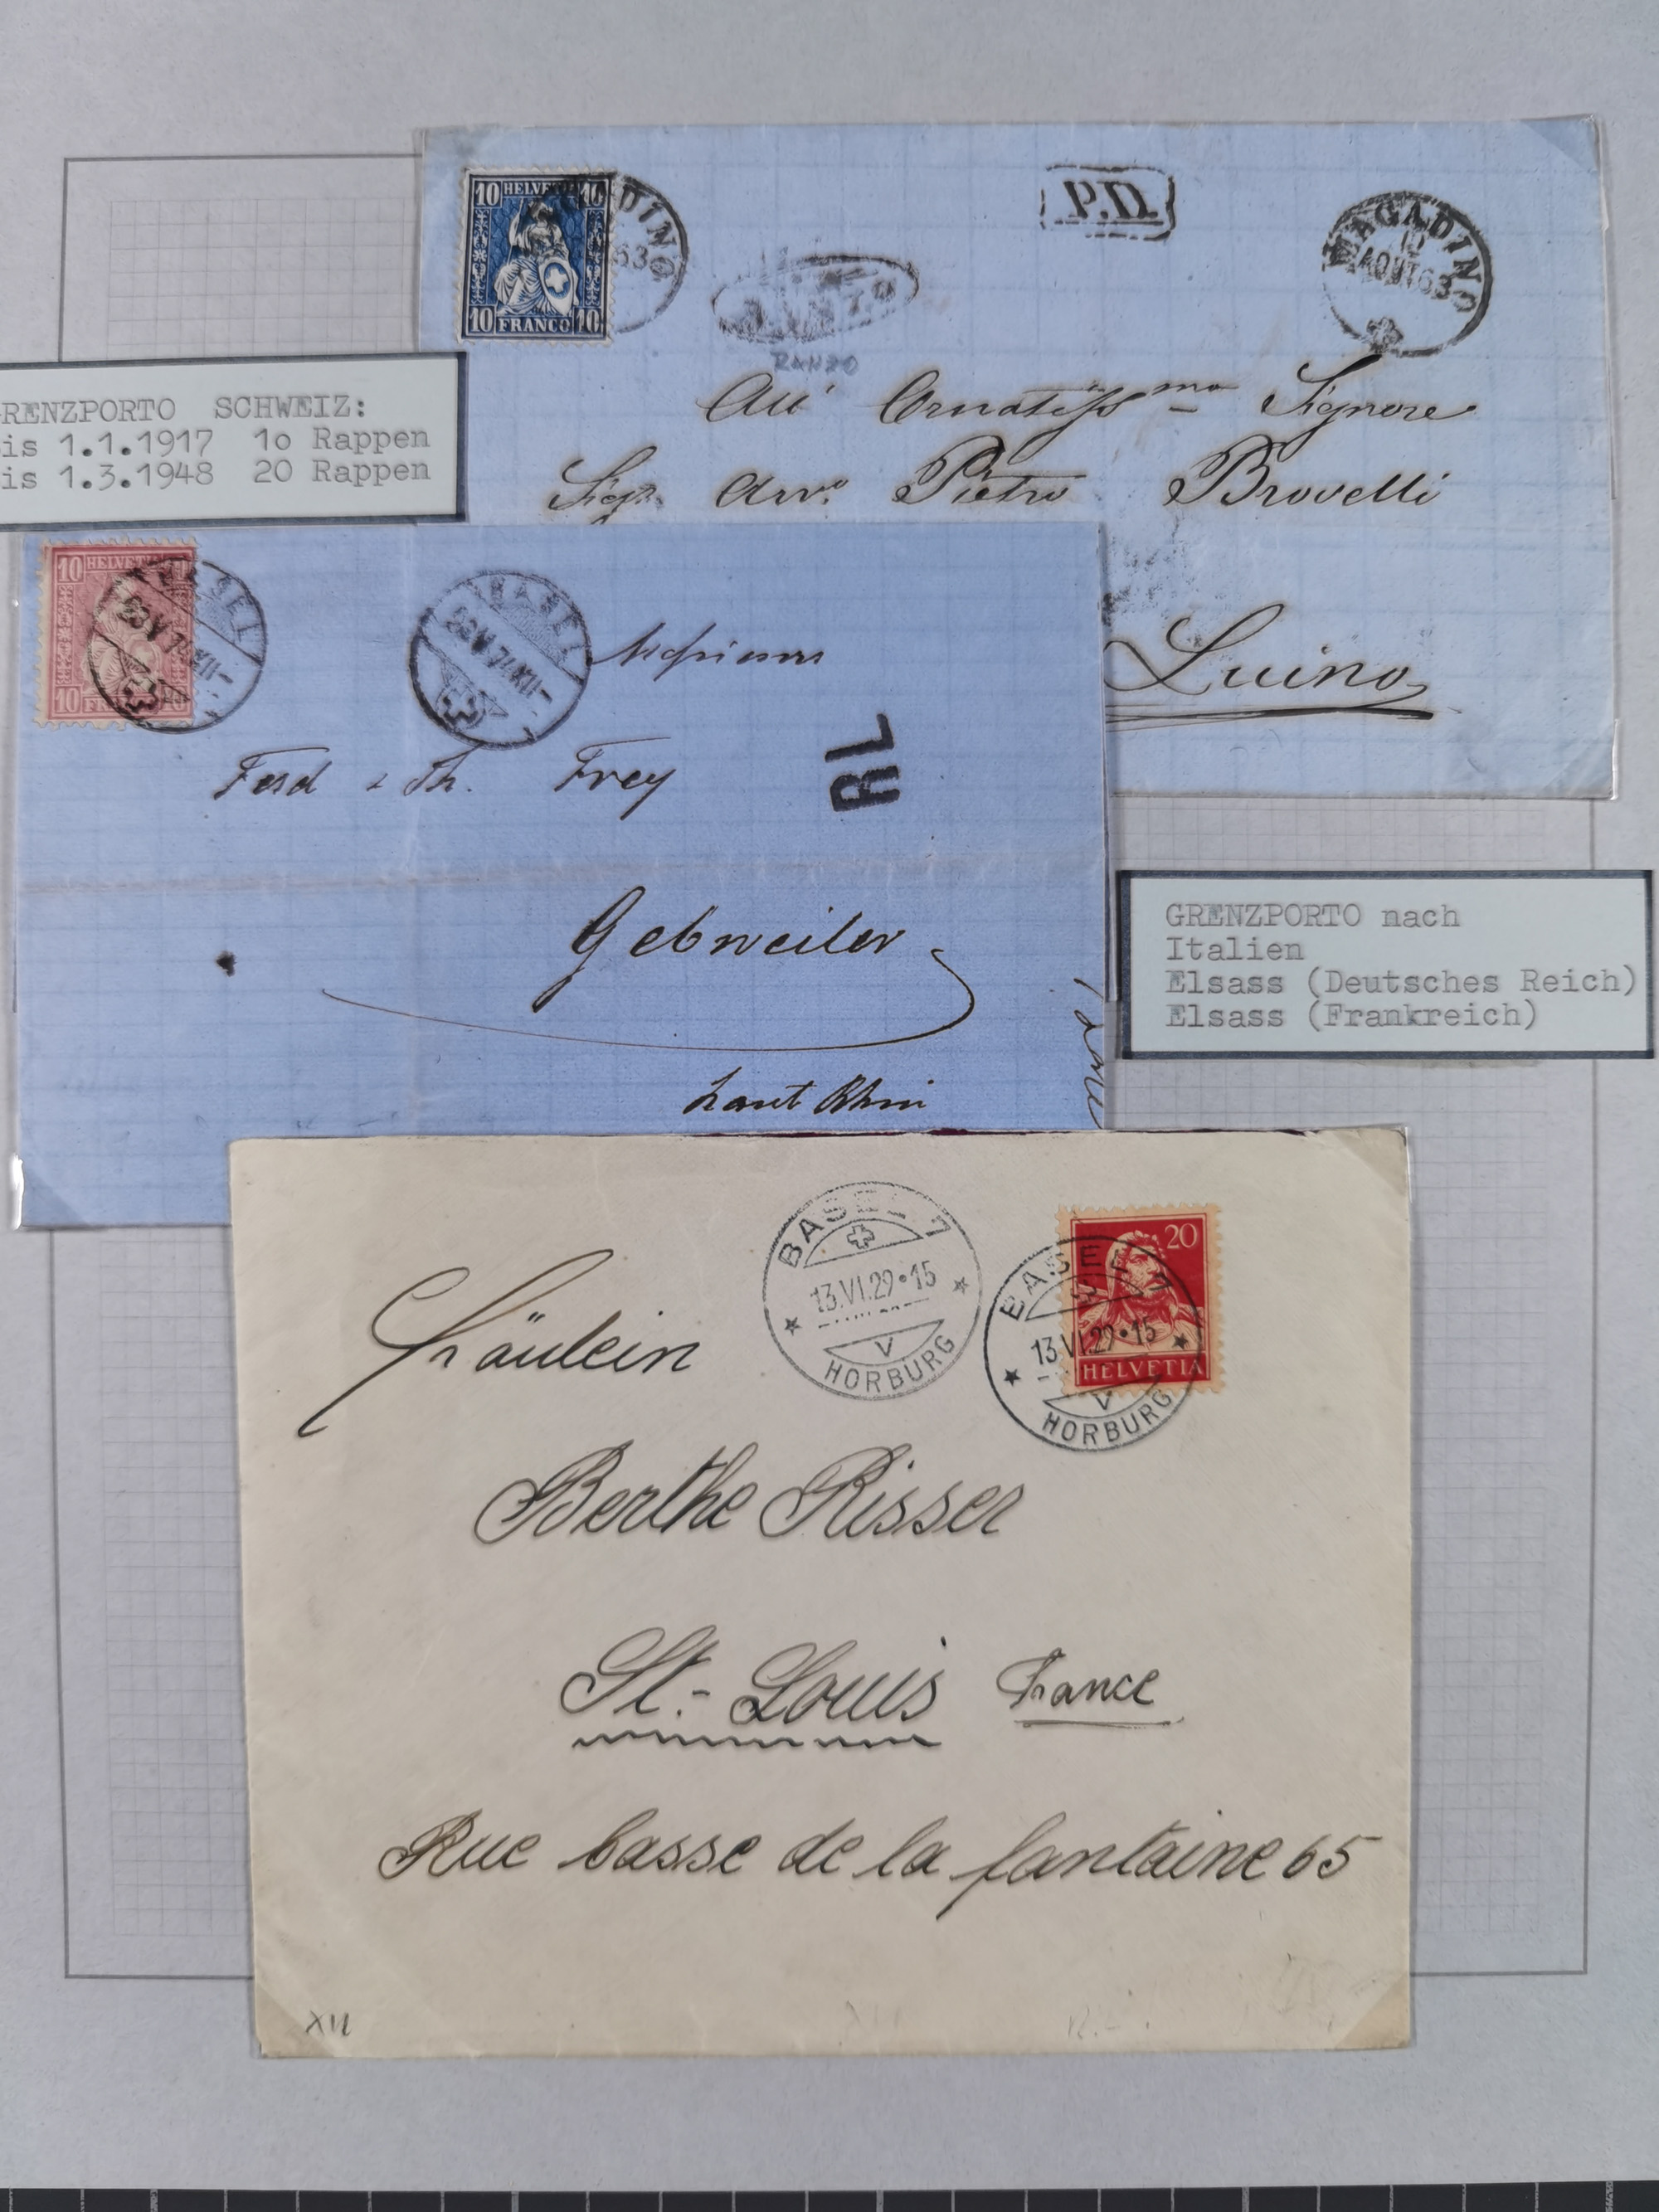 10 HELVETIA 10
10 FRANCO 10
P.D.
MAGADINO
AOUT 63
RANZO
Signore
Pietro Brovelli
Luino
RENZPORTO SCHWEIZ:
is 1.1.1917 1o Rappen
is 1.3.1948 20 Rappen
10 HELVETIA
10
BASEL
23 V 74 XII-
BASEL
23 V 74 XII-
Ferd & Th. Frey
RL
Gebweiler
haut Rhin
GRENZPORTO nach
Italien
Elsass (Deutsches Reich)
Elsass (Frankreich)
BASEL 7
13.VI.29•15
V
HORBURG
20
HELVETIA
BASEL 7
13.VI.29•15
V
HORBURG
Fräulein
Berthe Risser
St.-Louis France
Rue basse de la fantaine 65
XII